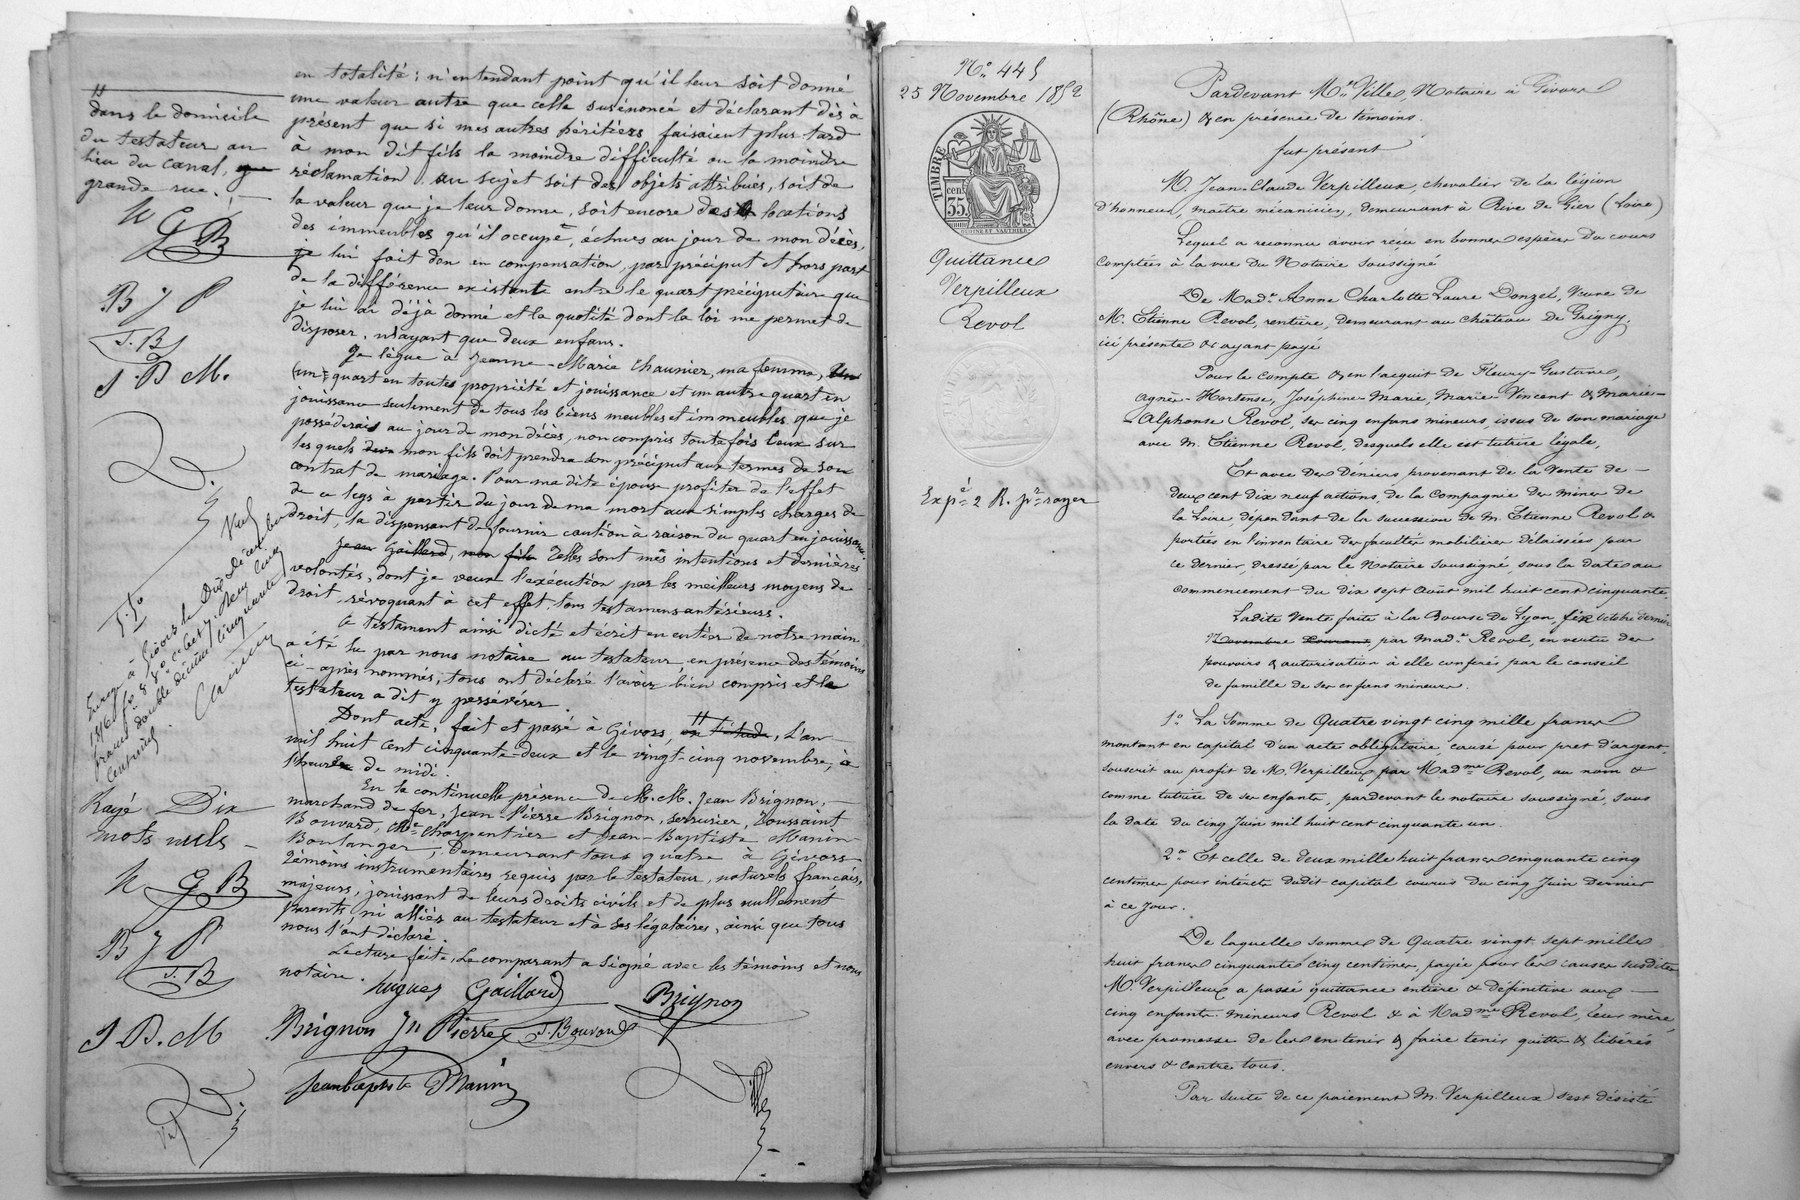 en totalité ; n'entendant point qu'il leur soit donné
une valeur autre que celle susénoncé et déclarant dès à
présent que si mes autres héritiers faisaient plus tard
à mon dit fils la moindre difficulté ou la moindre
réclamation au sujet soit des objets attribués, soit de
la valeur que je leur donne, soit encore des locations
des immeubles qu'il occupe, échues au jour de mon décès,
je lui fait don en compensation, par préciput et hors part
de la différence existante entre le quart préciputaire que
je lui ai déjà donné et la quotité dont la loi me permet de
disposer, n'ayant que deux enfans.
Je lègue à Jeanne-Marie Chaunier, ma femme, un
(un) quart en toutes propriété et jouissance et un autre quart en
jouissance seulement de tous les biens meubles et immeubles que je
posséderais au jour de mon décès, non compris toutefois ceux sur
lesquels mon fils doit prendre son préciput aux termes de son
contrat de mariage. Pour ma dite épouse profiter de l'effet
de ce legs à partir du jour de ma mort aux simples charges de
droit, la dispensant de fournir caution à raison du quart en jouissance.
Jean Gaillard, mon fils Telles sont mes intentions et dernières
volontés, dont je veux l'exécution par les meilleurs moyens de
droit, révoquant à cet effet tous testamens antérieurs.
Ce testament ainsi dicté et écrit en entier de notre main
a été lu par nous notaire au testateur, en présence des témoins
ci-après nommés, tous ont déclaré l'avoir bien compris et le
testateur a dit y persévérer.
Dont acte, fait et passé à Givors, en l'étude, L'an
mil huit cent cinquante-deux et le vingt-cinq novembre, à
l'heure de midi.
En la continuelle présence de M.M. Jean Brignon,
marchand de fer, Jean-Pierre Brignon, serrurier, Toussaint
Bouvard, Me Charpentier et Jean-Baptiste Manin
Boulanger, Demeurant tous quatre à Givors
Témoins instrumentaires requis par le testateur, naturels français,
majeurs, jouissant de leurs droits civils et de plus nullement
parents, ni alliés au testateur et à ses légataires, ainsi que tous
nous l'ont déclaré.
Lecture faite, Le comparant a signé avec les témoins et nous
notaire.
hugues Gaillard Brignon
Brignon Jn Pierre T. Bouvard
Jean baptiste Manin
Ville
dans le domicile
du testateur au
lieu du canal,
grande rue.
G B
B J P
T. B
J. B M.
Rayé Dix
mots nuls
G B
B J P
T. B
J B. M
No 445
25 Novembre 1852
TIMBRE
cen
35
Quittance
Verpilleux
Revol
Expé 2 R. pr rayer
Pardevant Me Ville, Notaire à Givors
(Rhône) & en présence de témoins.
fut présent
M. Jean-Claude Verpilleux, chevalier de la légion
d'honneur, maître mécanicien, demeurant à Rive de Gier (Loire)
Lequel a reconnu avoir reçu en bonnes espèces du cours
comptées à la vue du Notaire soussigné
De Made Anne Charlotte Laure Donzel, Veuve de
M. Etienne Revol, rentière, demeurant au château de Grigny,
ici présente & ayant payé
Pour le compte & en l'acquit de Fleury-Gustave,
Agnès-Hortense, Joséphine-Marie, Marie-Vincent & Marie-
Alphonse Revol, ses cinq enfans mineurs, issus de son mariage
avec M. Etienne Revol, desquels elle est tutrice légale,
Et avec des deniers provenant de la vente de
deux cent dix neuf actions de la Compagnie des mines de
la Loire, dépendant de la succession de M. Etienne Revol &
portées en l'inventaire des facultés mobilières délaissées par
ce dernier, dressé par le Notaire soussigné, sous la date au
commencement du dix sept Août mil huit cent cinquante.
Ladite vente faite à la Bourse de Lyon, fin octobre dernier
Novembre courant par made Revol, en vertu des
pouvoirs & autorisation à elle conférés par le conseil
de famille de ses enfans mineurs.
1o La somme de Quatre vingt cinq mille francs
montant en capital d'un acte obligatoire, causé pour prêt d'argent
souscrit au profit de M. Verpilleux, par Madme Revol, au nom &
comme tutrice de ses enfants, pardevant le notaire soussigné, sous
la date du cinq Juin mil huit cent cinquante un.
2o Et celle de deux mille huit francs cinquante cinq
centimes pour intérêts dudit capital courus du cinq Juin dernier
à ce Jour.
De laquelle somme de Quatre vingt sept mille
huit francs cinquante cinq centimes, payée pour les causes susdites
M. Verpilleux a passé quittance entière & définitive aux
cinq enfants mineurs Revol & à Madme Revol, leur mère,
avec promesse de les en tenir & faire tenir quittes & libérés
envers & contre tous.
Par suite de ce paiement M. Verpilleux s'est désisté